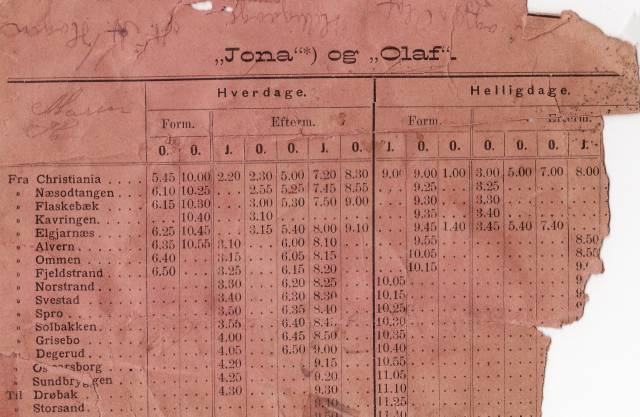 „Jona“*) og „Olaf“.
Hverdage. Helligdage.
Form. Efterm. Form. Efterm.
O. O. J. O. O. J. O. J. O. O. O. O. O. J.
Fra Christiania . . . . 5.45 10.00 2.20 2.30 5.00 7.20 8.30 9.00 1.00 3.00 5.00 7.00 8.00
„ Næsodtangen . . . 6.10 10.25 2.55 5.25 7.45 8.55 9.25 3.25
„ Flaskebæk . . . . 6.15 10.30 3.00 5.30 7.50 9.00 9.30 3.30
„ Kavringen. . . . . 10.40 3.10 9.35 3.40
„ Elgjarnæs . . . . 6.25 10.45 3.15 5.40 8.00 9.10 9.45 1.40 3.45 5.40 7.40
„ Alvern . . . . . . 6.35 10.55 3.10 6.00 8.10 9.55 8.50
„ Ommen . . . . . 6.40 3.15 6.05 8.15 10.05 8.55
„ Fjeldstrand . . . . 6.50 3.25 6.15 8.20 10.15
„ Norstrand . . . . 3.30 6.20 8.25 10.05
„ Svestad . . . . . 3.40 6.30 8.30 10.15
„ Spro . . . . . . . 3.50 6.35 8.40 10.25
„ Solbakken . . . . 3.55 6.40 10.30
„ Grisebo . . . . . 4.00 6.45 8.50 10.35
„ Degerud . . . . . 4.05 6.50 9.00 10.40
4.20 9.15 10.55
„ 4.25 9.20 11.05
Til Drøbak . . . . . 4.30 9.30 11.10
„ Storsand . . . . . 11.25